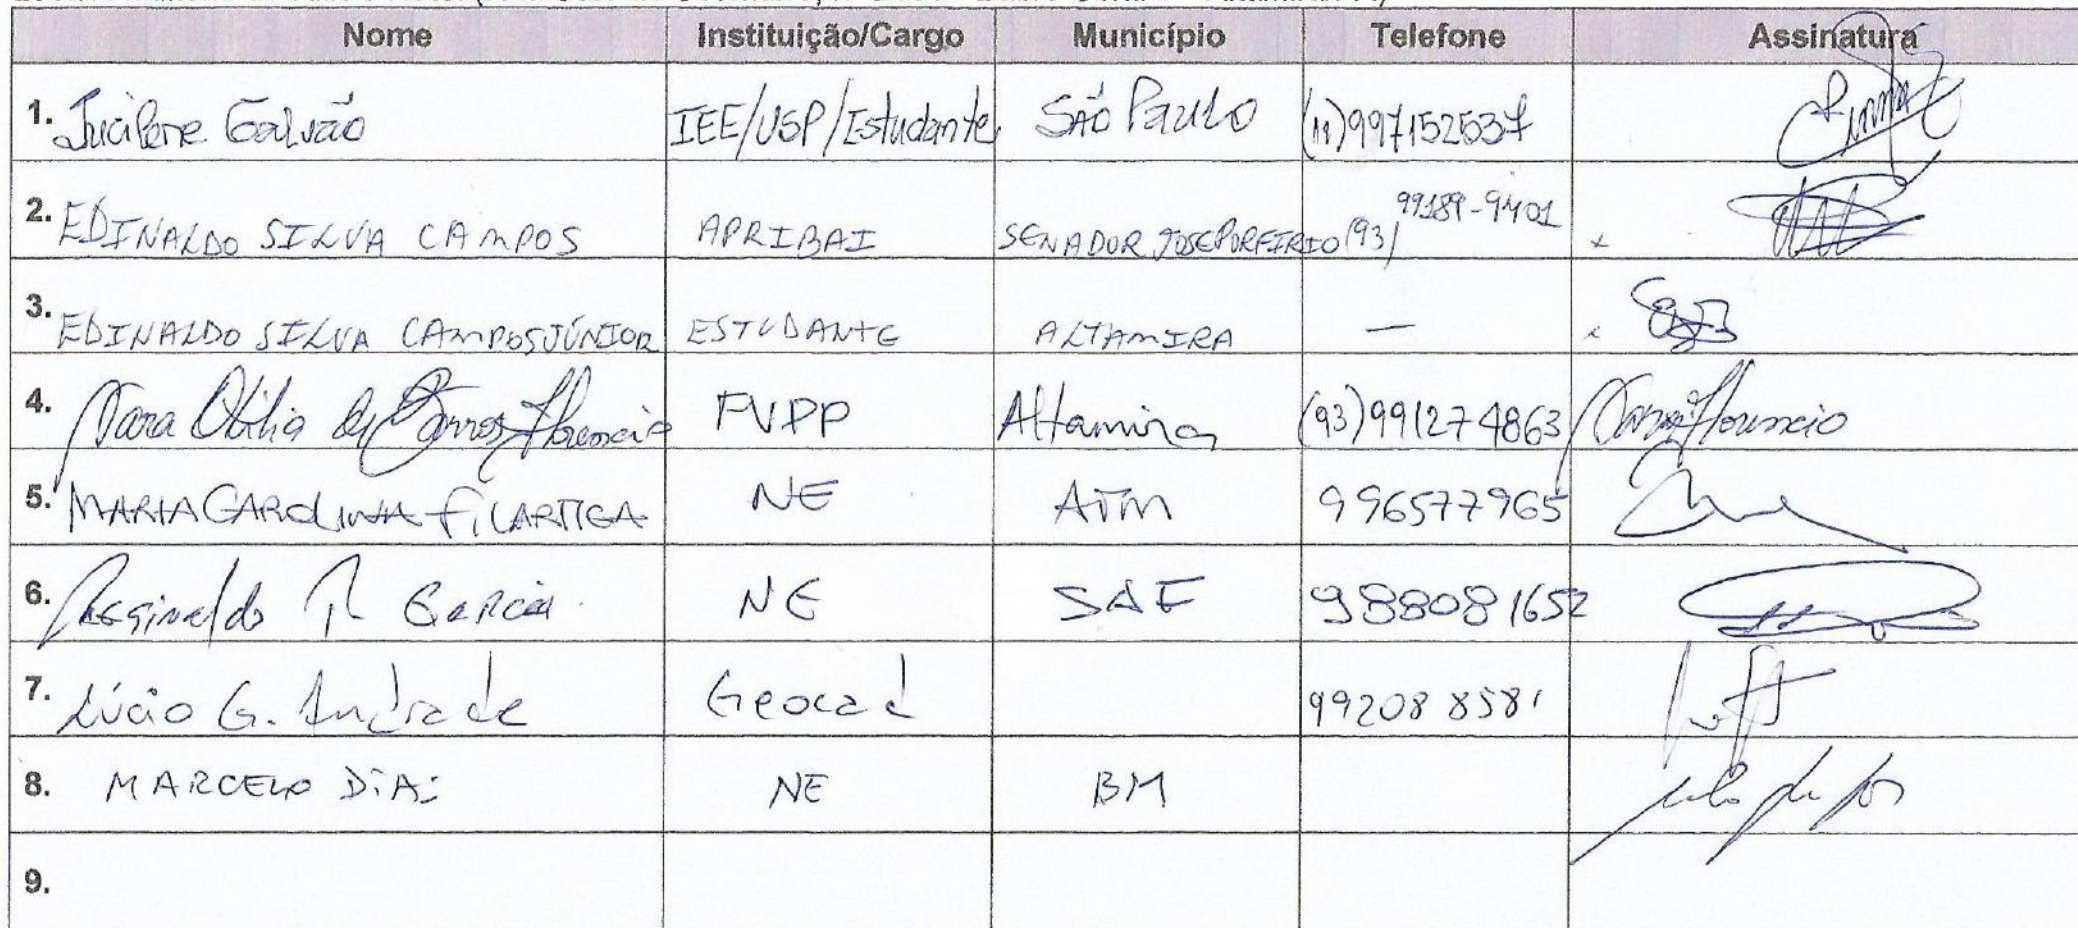 Nome Instituição/Cargo Município Telefone Assinatura
1. Jucilene Galvão IEE/USP/Estudante São Paulo (11)997152537
2. EDINALDO SILVA CAMPOS APRIBAI SENADOR JOSEPORFIRIO (93) 99189-9401
3. EDINALDO SILVA CAMPOS JÚNIOR ESTUDANTE ALTAMIRA —
4. Nara Otília de Barros Florencio FVPP Altamira (93)991274863 Nara Florencio
5. MARIA CAROLINHA FILARTIGA NE ATM 996577965
6. Reginaldo R Garcia NE SAE 988081652
7. Lúcio G. Andrade Geocad 992088581
8. MARCELO DIAS NE BM
9.